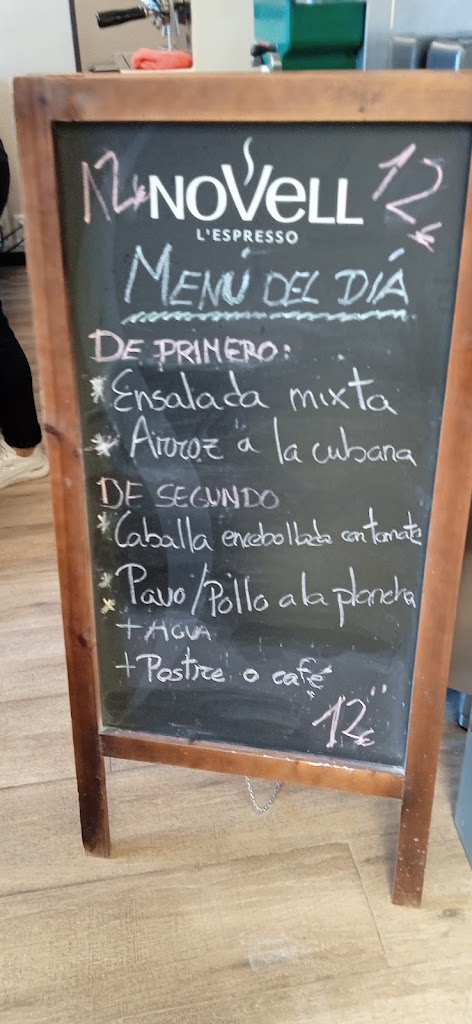 12€ NOVELL 12€
L'ESPRESSO
MENÚ DEL DÍA
DE PRIMERO:
* Ensalada mixta
* Arroz "a la cubana
DE SEGUNDO
* Caballa encebollada con tomate
* Pavo/Pollo a la plancha
*
+ AGUA
+ Postre o café
12"€